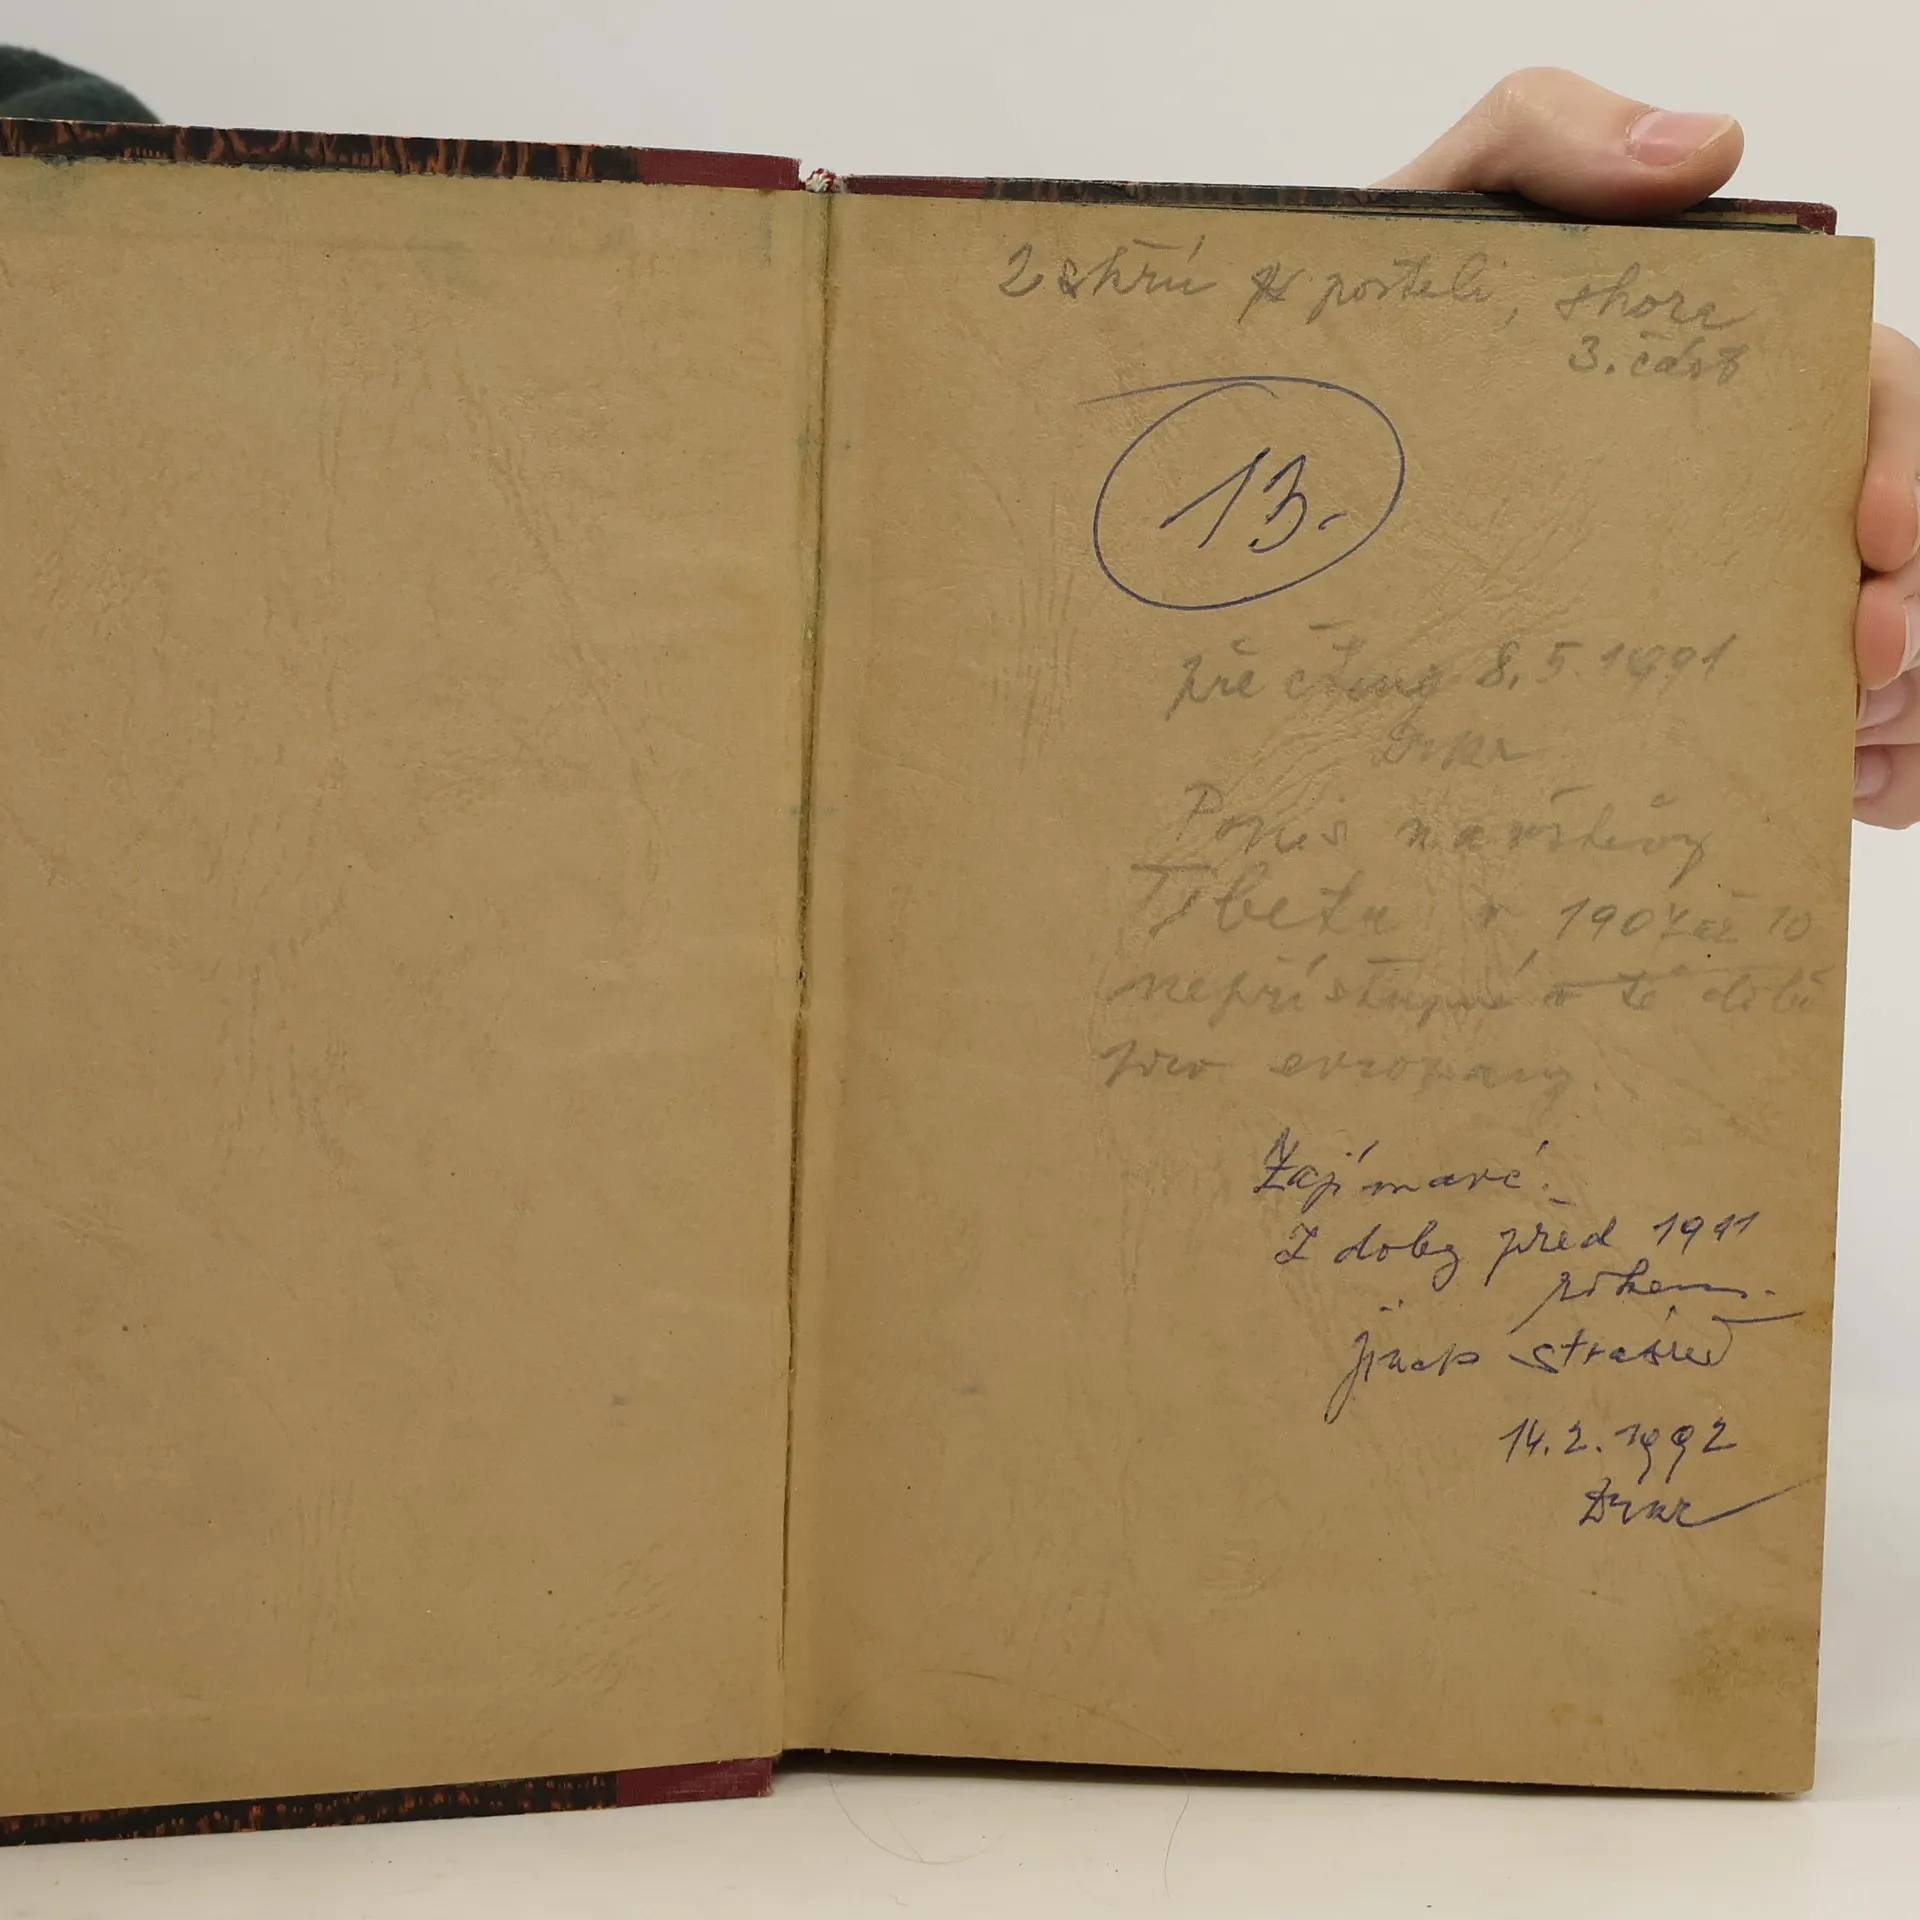 2 skříň posteli, shora
3. část
13.
přečteno 8.5.1991
Popis návštěvy
Tibetu v 1907 až 10
nepřístupné v té době
pro evropany.
Zajímavé.
Z doby před 1911
rokem.
jinak
14.2.1992